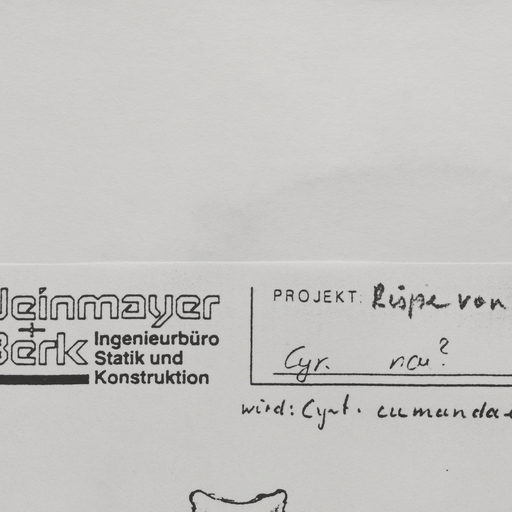 einmayer
+
Berk Ingenieurbüro
Statik und
Konstruktion
PROJEKT: Rispe von
Cyr. nov?
wird: Cyrt. cumandae